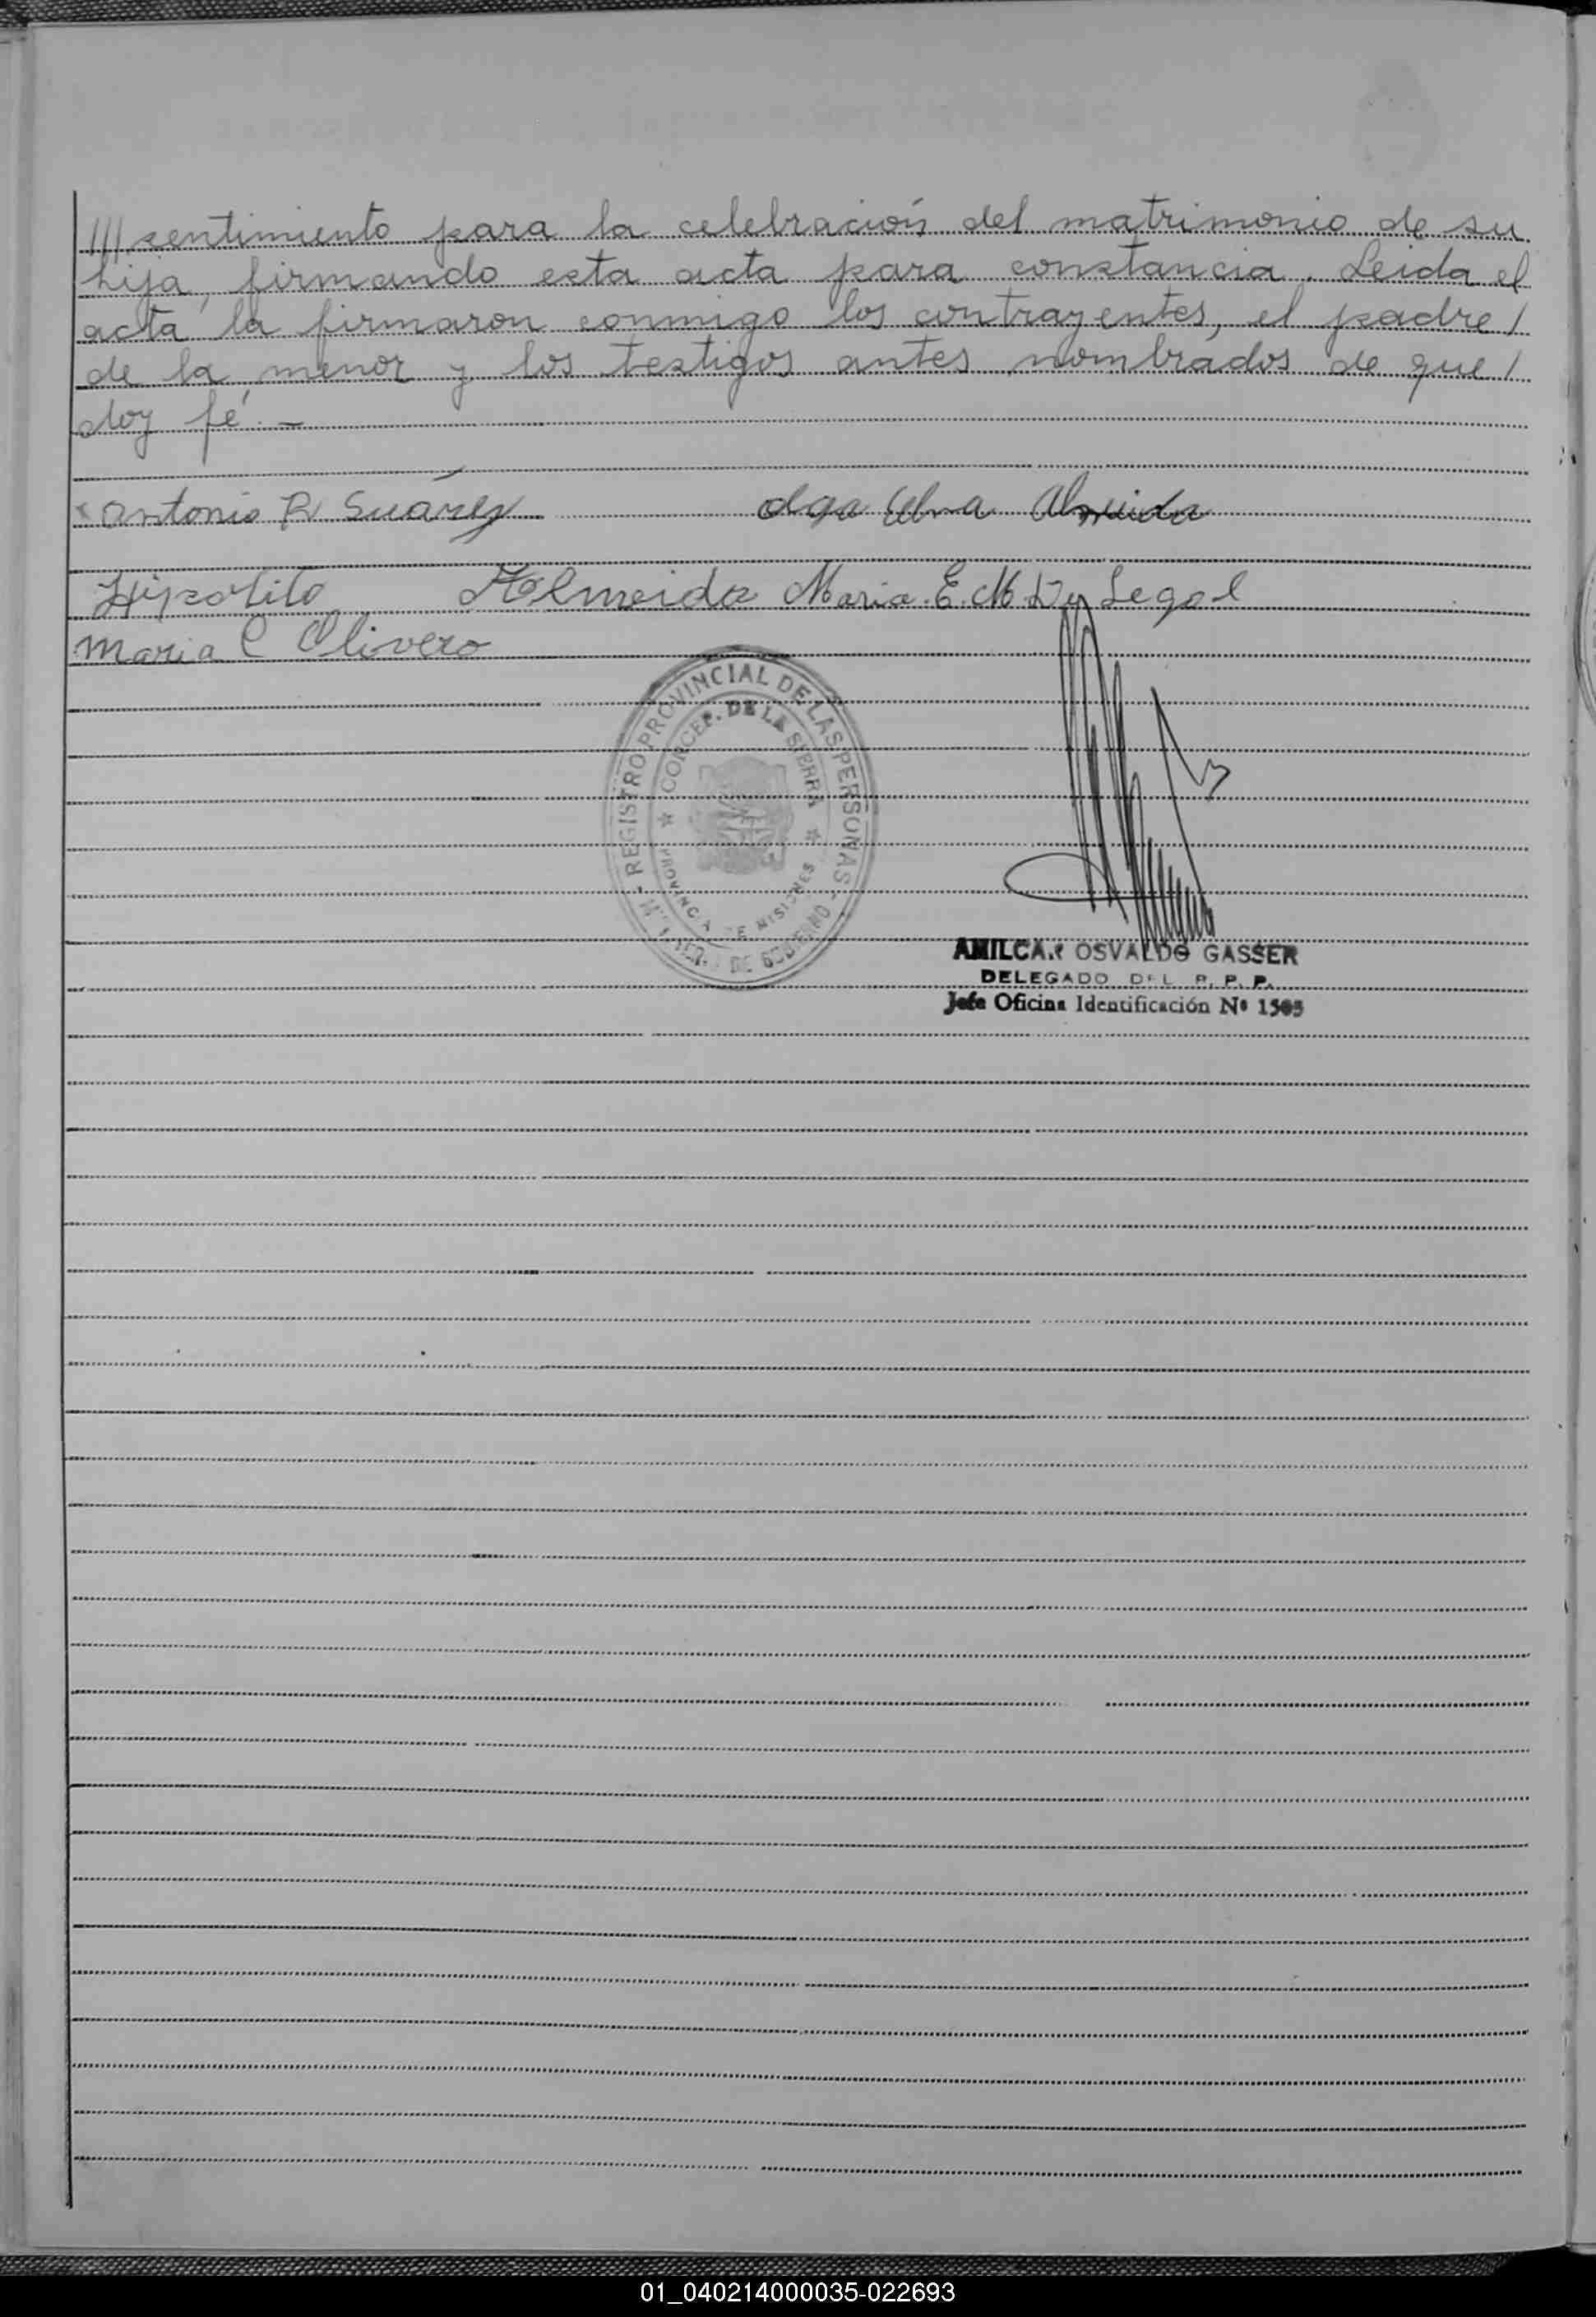 /// sentimiento para la celebración del matrimonio de su
hija, firmando esta acta para constancia. Leida el
acta la firmaron conmigo los contrayentes, el padre /
de la menor y los testigos antes nombrados de que /
doy fé. -
Antonio R Suárez olga Elva Almeida
Hipolito Almeida Maria E. M. D Legal
Maria C Olivero
REGISTRO PROVINCIAL DE LAS PERSONAS
CONCEP. DE LA SIERRA
PROVINCIA DE MISIONES
DE GOBIERNO
AMILCAR OSVALDO GASSER
DELEGADO DEL R. P. P.
Jefe Oficina Identificación Nº 1505
01_040214000035-022693